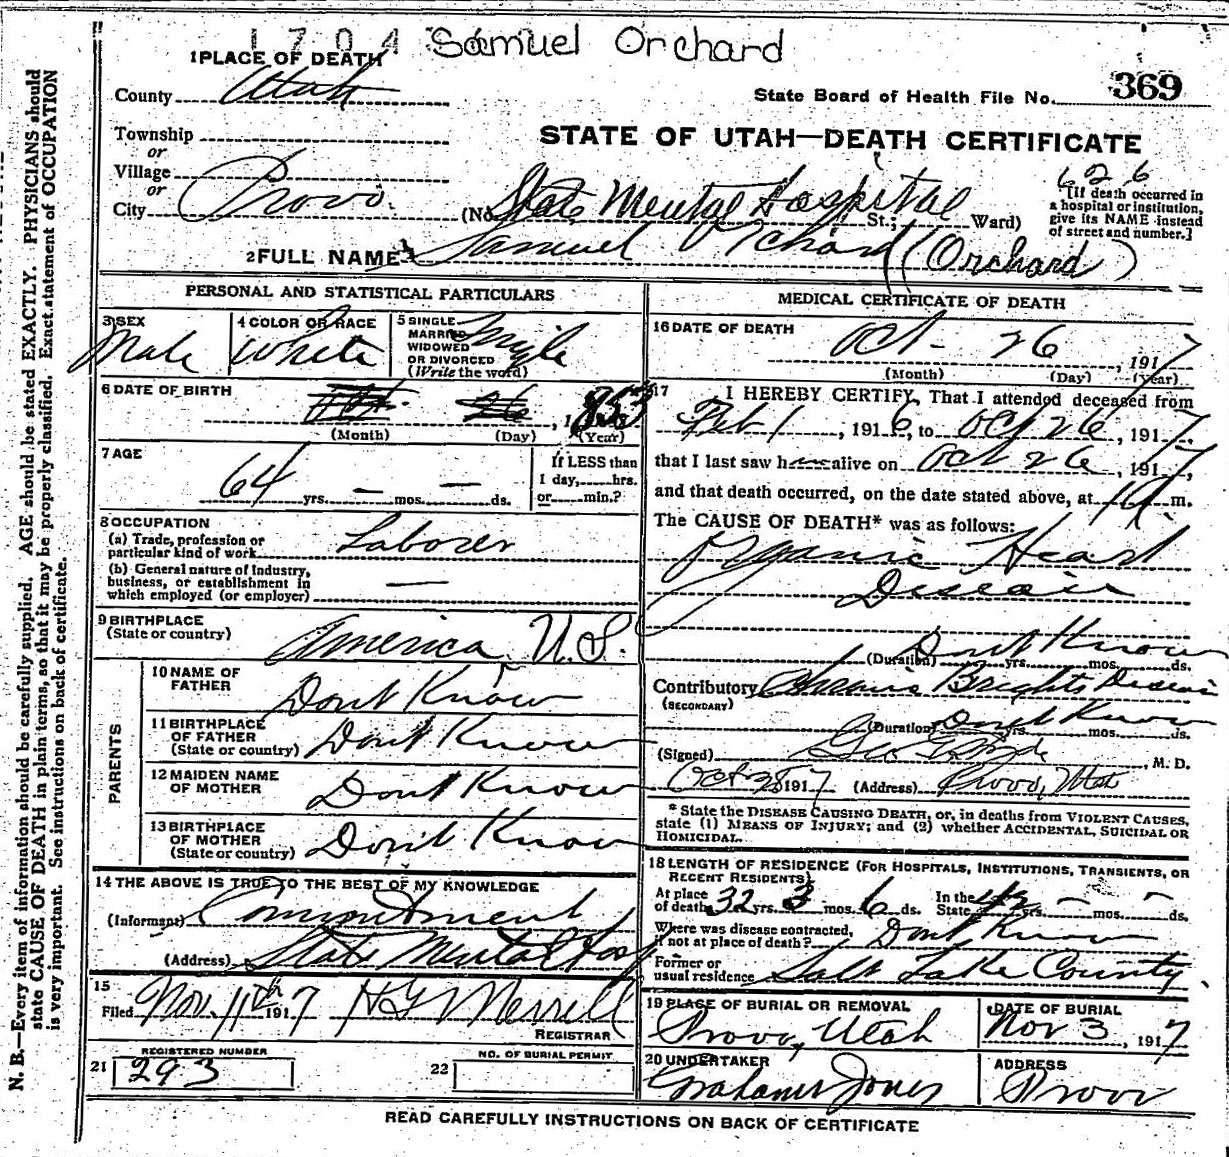 1704 Samuel Orchard
1 PLACE OF DEATH
County Utah
State Board of Health File No. 369
Township
or
Village
or
City Provo
STATE OF UTAH—DEATH CERTIFICATE
626
[If death occurred in
a hospital or institution,
give its NAME instead
of street and number.]
(No. State Mental Hospital St.; Ward)
2 FULL NAME Samuel Orchard (Orchard)
PERSONAL AND STATISTICAL PARTICULARS
3 SEX
Male
4 COLOR OR RACE
White
5 SINGLE
MARRIED
WIDOWED
OR DIVORCED
(Write the word)
Single
6 DATE OF BIRTH
Oct 26, 1853
(Month) (Day) (Year)
7 AGE
64 yrs. — mos. — ds.
If LESS than
1 day,......hrs.
or......min.?
8 OCCUPATION
(a) Trade, profession or
particular kind of work Laborer
(b) General nature of Industry,
business, or establishment in
which employed (or employer) —
9 BIRTHPLACE
(State or country) America U.S.
PARENTS
10 NAME OF
FATHER Dont Know
11 BIRTHPLACE
OF FATHER
(State or country) Dont Know
12 MAIDEN NAME
OF MOTHER Dont Know
13 BIRTHPLACE
OF MOTHER
(State or country) Dont Know
14 THE ABOVE IS TRUE TO THE BEST OF MY KNOWLEDGE
(Informant) Commitment
(Address) State Mental Hosp
15
Filed Nov. 11th 1917 H G Merrell
REGISTRAR
REGISTERED NUMBER
21 293
NO. OF BURIAL PERMIT
22
MEDICAL CERTIFICATE OF DEATH
16 DATE OF DEATH
Oct - 26, 1917
(Month) (Day) (Year)
17 I HEREBY CERTIFY, That I attended deceased from
Feb 1, 1916, to Oct 26, 1917,
that I last saw h alive on Oct 26, 1917,
and that death occurred, on the date stated above, at m.
The CAUSE OF DEATH* was as follows:
Organic Heart
Disease
(Duration) Dont Know yrs. mos. ds.
Contributory Chronic Brights Disease
(SECONDARY)
(Duration) Dont Know yrs. mos. ds.
(Signed) Geo , M. D.
Oct 28 1917 (Address) Provo, Utah
* State the DISEASE CAUSING DEATH, or, in deaths from VIOLENT CAUSES,
state (1) MEANS OF INJURY; and (2) whether ACCIDENTAL, SUICIDAL OR
HOMICIDAL.
18 LENGTH OF RESIDENCE (FOR HOSPITALS, INSTITUTIONS, TRANSIENTS, OR
RECENT RESIDENTS)
At place
of death 32 yrs. 3 mos. 6 ds. In the
State 42 yrs. — mos. — ds.
Where was disease contracted,
if not at place of death? Dont Know
Former or
usual residence Salt Lake County
19 PLACE OF BURIAL OR REMOVAL
Provo, Utah
DATE OF BURIAL
Nov 3, 1917
20 UNDERTAKER
Graham Jones
ADDRESS
Provo
READ CAREFULLY INSTRUCTIONS ON BACK OF CERTIFICATE
N. B.—Every item of information should be carefully supplied. AGE should be stated EXACTLY. PHYSICIANS should
state CAUSE OF DEATH in plain terms, so that it may be properly classified. Exact statement of OCCUPATION
is very important. See instructions on back of certificate.